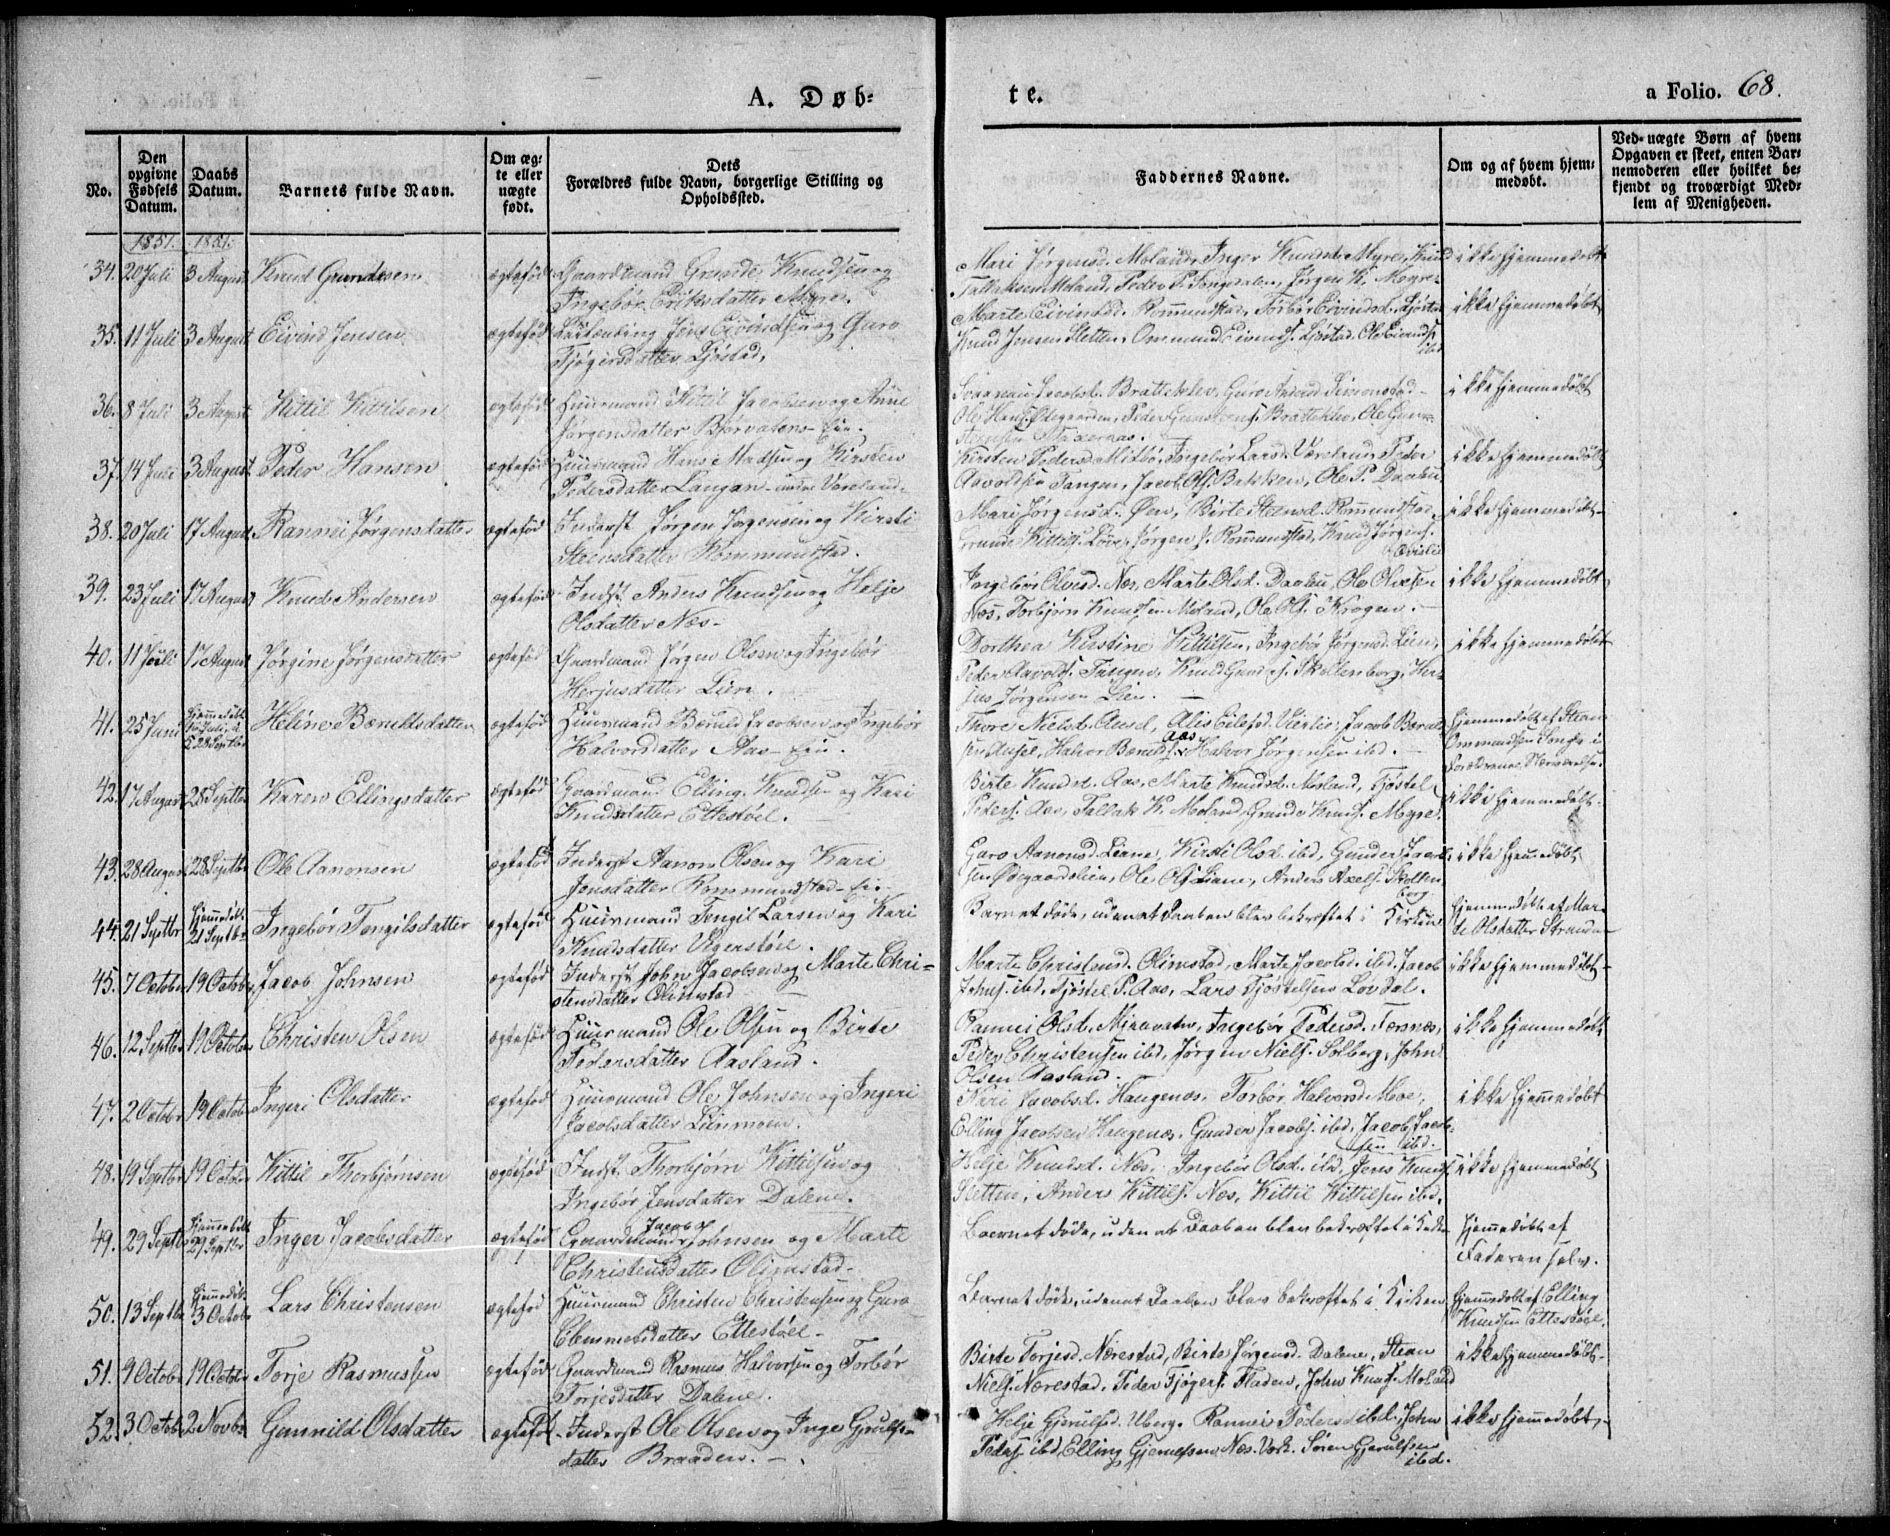 A. Døb-
te.
a Folio. 68.
No.
Den opgivne Fødsels Datum.
Daabs Datum.
Barnets fulde Navn.
Om ægte eller uægte født.
Dets Forældres fulde Navn, borgerlige Stilling og Opholdssted.
Faddernes Navne.
Om og af hvem hjemmedøbt.
Ved uægte Børn af hvem Opgaven er skeet, enten Barnemoderen eller hvilket bekjendt og troværdigt Medlem af Menigheden.
1851. 1851.
34. 20 Juli 3 August Knud Gundesen ægtefød Gaardmand Gunde Knudsen og
Ingebør Eriksdatter Myre.
Mari Jørgensd. Moland, Inger Knudsd. Myre, Knud
Tallaksen Moland, Peder P. Jørgen K. Myre
ikke hjemmedøbt
35. 11 Juli 3 August Eivind Jensen ægtefød Jens Eivindsen og Guro
Tjøgersdatter Ljøstad.
Marte Eivindsd. Rommundstad, Torbør Eivindsd. Ljøstad
Knud Jensen Sletten, Ommund Eivinds. Ljøstad, Ole Eivinds.
ibd
ikke hjemmedøbt
36. 8 Juli 3 August Kittil Kittilsen ægtefød Huusmand Kittil Jacobsen og Anne
Jørgensdatter Bjorvatens-Eie.
Jacobsd. Bratteklev, Guro Simonstad
Ole Hans. Ødegaarden, Peder Bratteklev, Ole Gun-
ikke hjemmedøbt
37. 14 Juli 3 August Peder Hansen ægtefød Huusmand Hans Madsen og Kirsten
Pedersdatter Langan under Væreland
Kirsten Pedersd. Mitbø, Ingebør Larsd. Væreland, Peder
Aavoldsen Tangen, Jacob Ols. Bakken, Ole P. Daalen
ikke hjemmedøbt
38. 20 Juli 17 August Rannei Jørgensdatter ægtefød Inderst Jørgen Jørgensen og Kirsti
Steensdatter Rommundstad.
Mari Jørgensd. Øen, Birte Steensd. Rommundstad
Gunde Kittils. Løve, Jørgen J. Rommundstad, Knud Jørgens.
ikke hjemmedøbt
39. 23 Juli 17 August Knud Andersen ægtefød Indst. Anders Knudsen og Helje
Olsdatter Næs
Ingebør Olsd. Næs, Marte Olsd. Daalen, Ole Olsen
Næs, Torbjørn Knudsen Moland, Ole Ols. Krogen.
ikke hjemmedøbt
40. 11 Juli 17 August Jørgine Jørgensdatter ægtefød Gaardmand Jørgen Olsen og Ingebør
Herjusdatter Lien.
Dorthea Kirstine Kittilsen, Ingebør Jørgensd. Lien,
Peder Aavolds. Tangen, Knud Gund s. Skollenborg, Her-
jus Jørgensen Lien.
ikke hjemmedøbt
41. 25 Juni Hjemmedøbt Juli, d. 28 Septbr Heline Bæruldsdatter ægtefød Huusmand Bæruld Jacobsen og Ingebør
Halvorsdatter Aas-Eie.
Thore Nielsd. Ausel, Alis Eilefsd. Jacob Bæruld
sen Ausel, Halvor Bærulds. Aas Halvor Jørgensen ibd.
Hjemmedøbt af Stean
Ommundsen Songe i
Forældrenes Nærværelse.
42. 17 August 28 Septbr Karen Ellingsdatter ægtefød Gaardmand Elling Knudsen og Kari
Knudsdatter Ettestøel.
Birte Knudsd. Aas, Marte Knudsd. Moland, Tjøstel
Peders. Aas, Tallak K. Moland, Gunde Knuds. Myre.
ikke hjemmedøbt.
43. 28 August 28 Septbr Ole Aanonsen ægtefød Inderst Aanon Olsen og Kari
Jonsdatter Rommundstad-Eie.
Guro Aanonsd. Liane, Kirsti Olsd. ibd, Gunder Jacob-
sen Ødegaardslien, Ole Ols. Liane, Anders Axels. Skollen
borg
ikke hjemmedøbt
44. 21 Septbr Hjemmedøbt 21 Septbr Ingebør Tengilsdatter ægtefød Huusmand Tengil Larsen og Kari
Knudsdatter Vigenstøl.
Barnet døde, uden at Daaben blev bekræftet i Kirken
Hjemmedøbt af Mar-
te Olsdatter
45. 7 Octobr 19 Octobr Jacob Johnsen ægtefød Inderst John Jacobsen og Marte Chri-
stensdatter Olimstad
Marte Christensd. Olimstad, Marte Jacobsd. ibd. Jacob
Johns. ibd. Tjøstel P. Aas, Lars Tjøstelsen Lovdal.
ikke hjemmedøbt
46. 12 Septbr 19 Octobr Christen Olsen ægtefød Huusmand Ole Olsen og Birte
Pedersdatter Aasland.
Rannei Olsd. Mjaavatn, Ingebør Pedersd. Tørsnæs,
Peder Christensen ibd, Jørgen Niels. Solberg, John
Olsen Aasland.
ikke hjemmedøbt
47. 2 Octobr 19 Octobr Ingeri Olsdatter ægtefød Huusmand Ole Johnsen og Ingeri
Jacobsdatter Lienmoen.
Kari Jacobsd. Haugenæs, Torbør Halvorsd. Moe,
Elling Jacobsen Haugenæs, Gunder Jacobs. ibd, Jacob Jacob-
sen ibd.
ikke hjemmedøbt
48. 19 Septbr 19 Octobr Kittil Thorbjørnsen ægtefød Indst. Thorbjørn Kittilsen og
Ingebør Jensdatter Dalene.
Helje Knudsd. Næs, Ingebør Olsd. ibd, Jens Knuds.
Sletten, Anders Kittils. Næs, Kittil Kittilsen ibd.
ikke hjemmedøbt
49. 29 Septbr Hjemmedøbt 29 Septbr Inger Jacobsdatter ægtefød Gaardmand Jacob Johnsen og Marte
Christensdatter Olimstad.
Barnet døde, uden at Daaben blev bekræftet i Kirken
Hjemmedøbt af
Faderen selv.
50. 13 Septbr Hjemmedøbt 3 Octobr Lars Christensen ægtefød Huusmand Christen Christensen og Guro
Clemmetsdatter Ettestøel.
Barnet døde, uden at Daaben blev bekræftet i Kirken
Hjemmedøbt af Elling
Knudsen Ettestøel.
51. 9 Octobr 19 Octobr Torje Rasmussen ægtefød Gaardmand Rasmus Halvorsen og Torbør
Torjesdatter Dalene.
Birte Torjesd. Nærestad, Birte Jørgensd. Dalene, Stean
Niels. Nærestad, Peder Tjøgers. Fladen, John Knuds. Moland
ikke hjemmedøbt
52. 3 Octobr 2 Novbr Gunnild Olsdatter ægtefød Inderst Ole Olsen og Inge Gjerulfs-
datter Braaden.
Helje Gjerulfsd. Uberg, Rannei Pedersd. ibd. John
Peders. ibd, Elling Gjerulfsen, Næs. Verk. Søren Gjerulfsen
ibd.
ikke hjemmedøbt